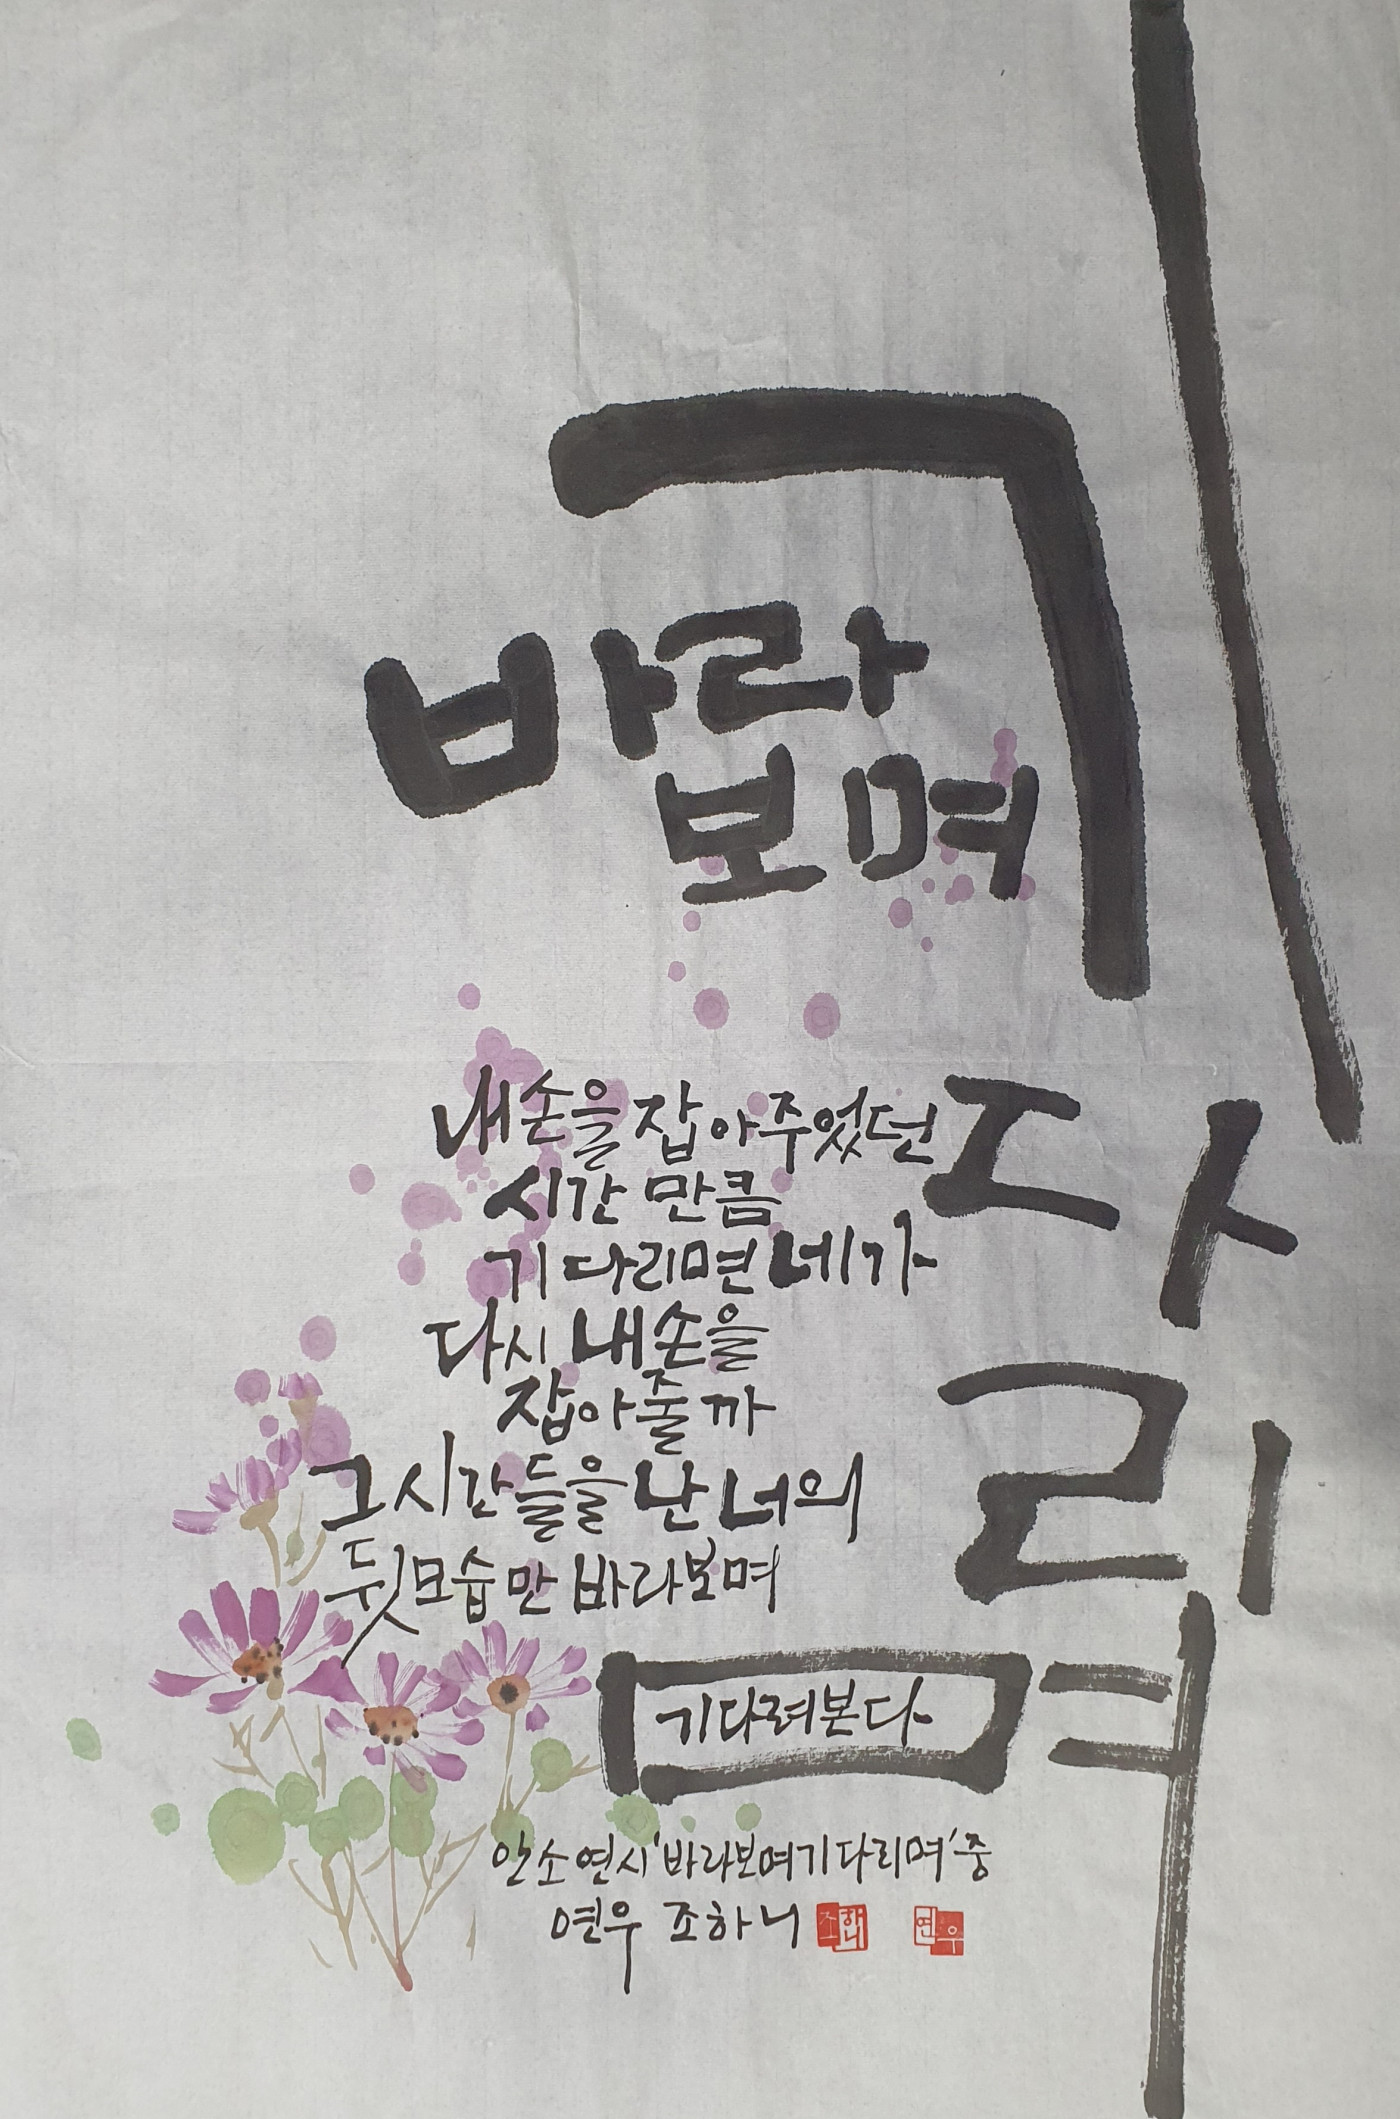 바라
보며
기다리며
내 손을 잡아주었던
시간 만큼
기다리면 네가
다시 내 손을
잡아줄까
그 시간들을 난 너의
뒷모습만 바라보며
기다려본다
안소연 시 '바라보며 기다리며' 중
연우 조하니
조하니
연우